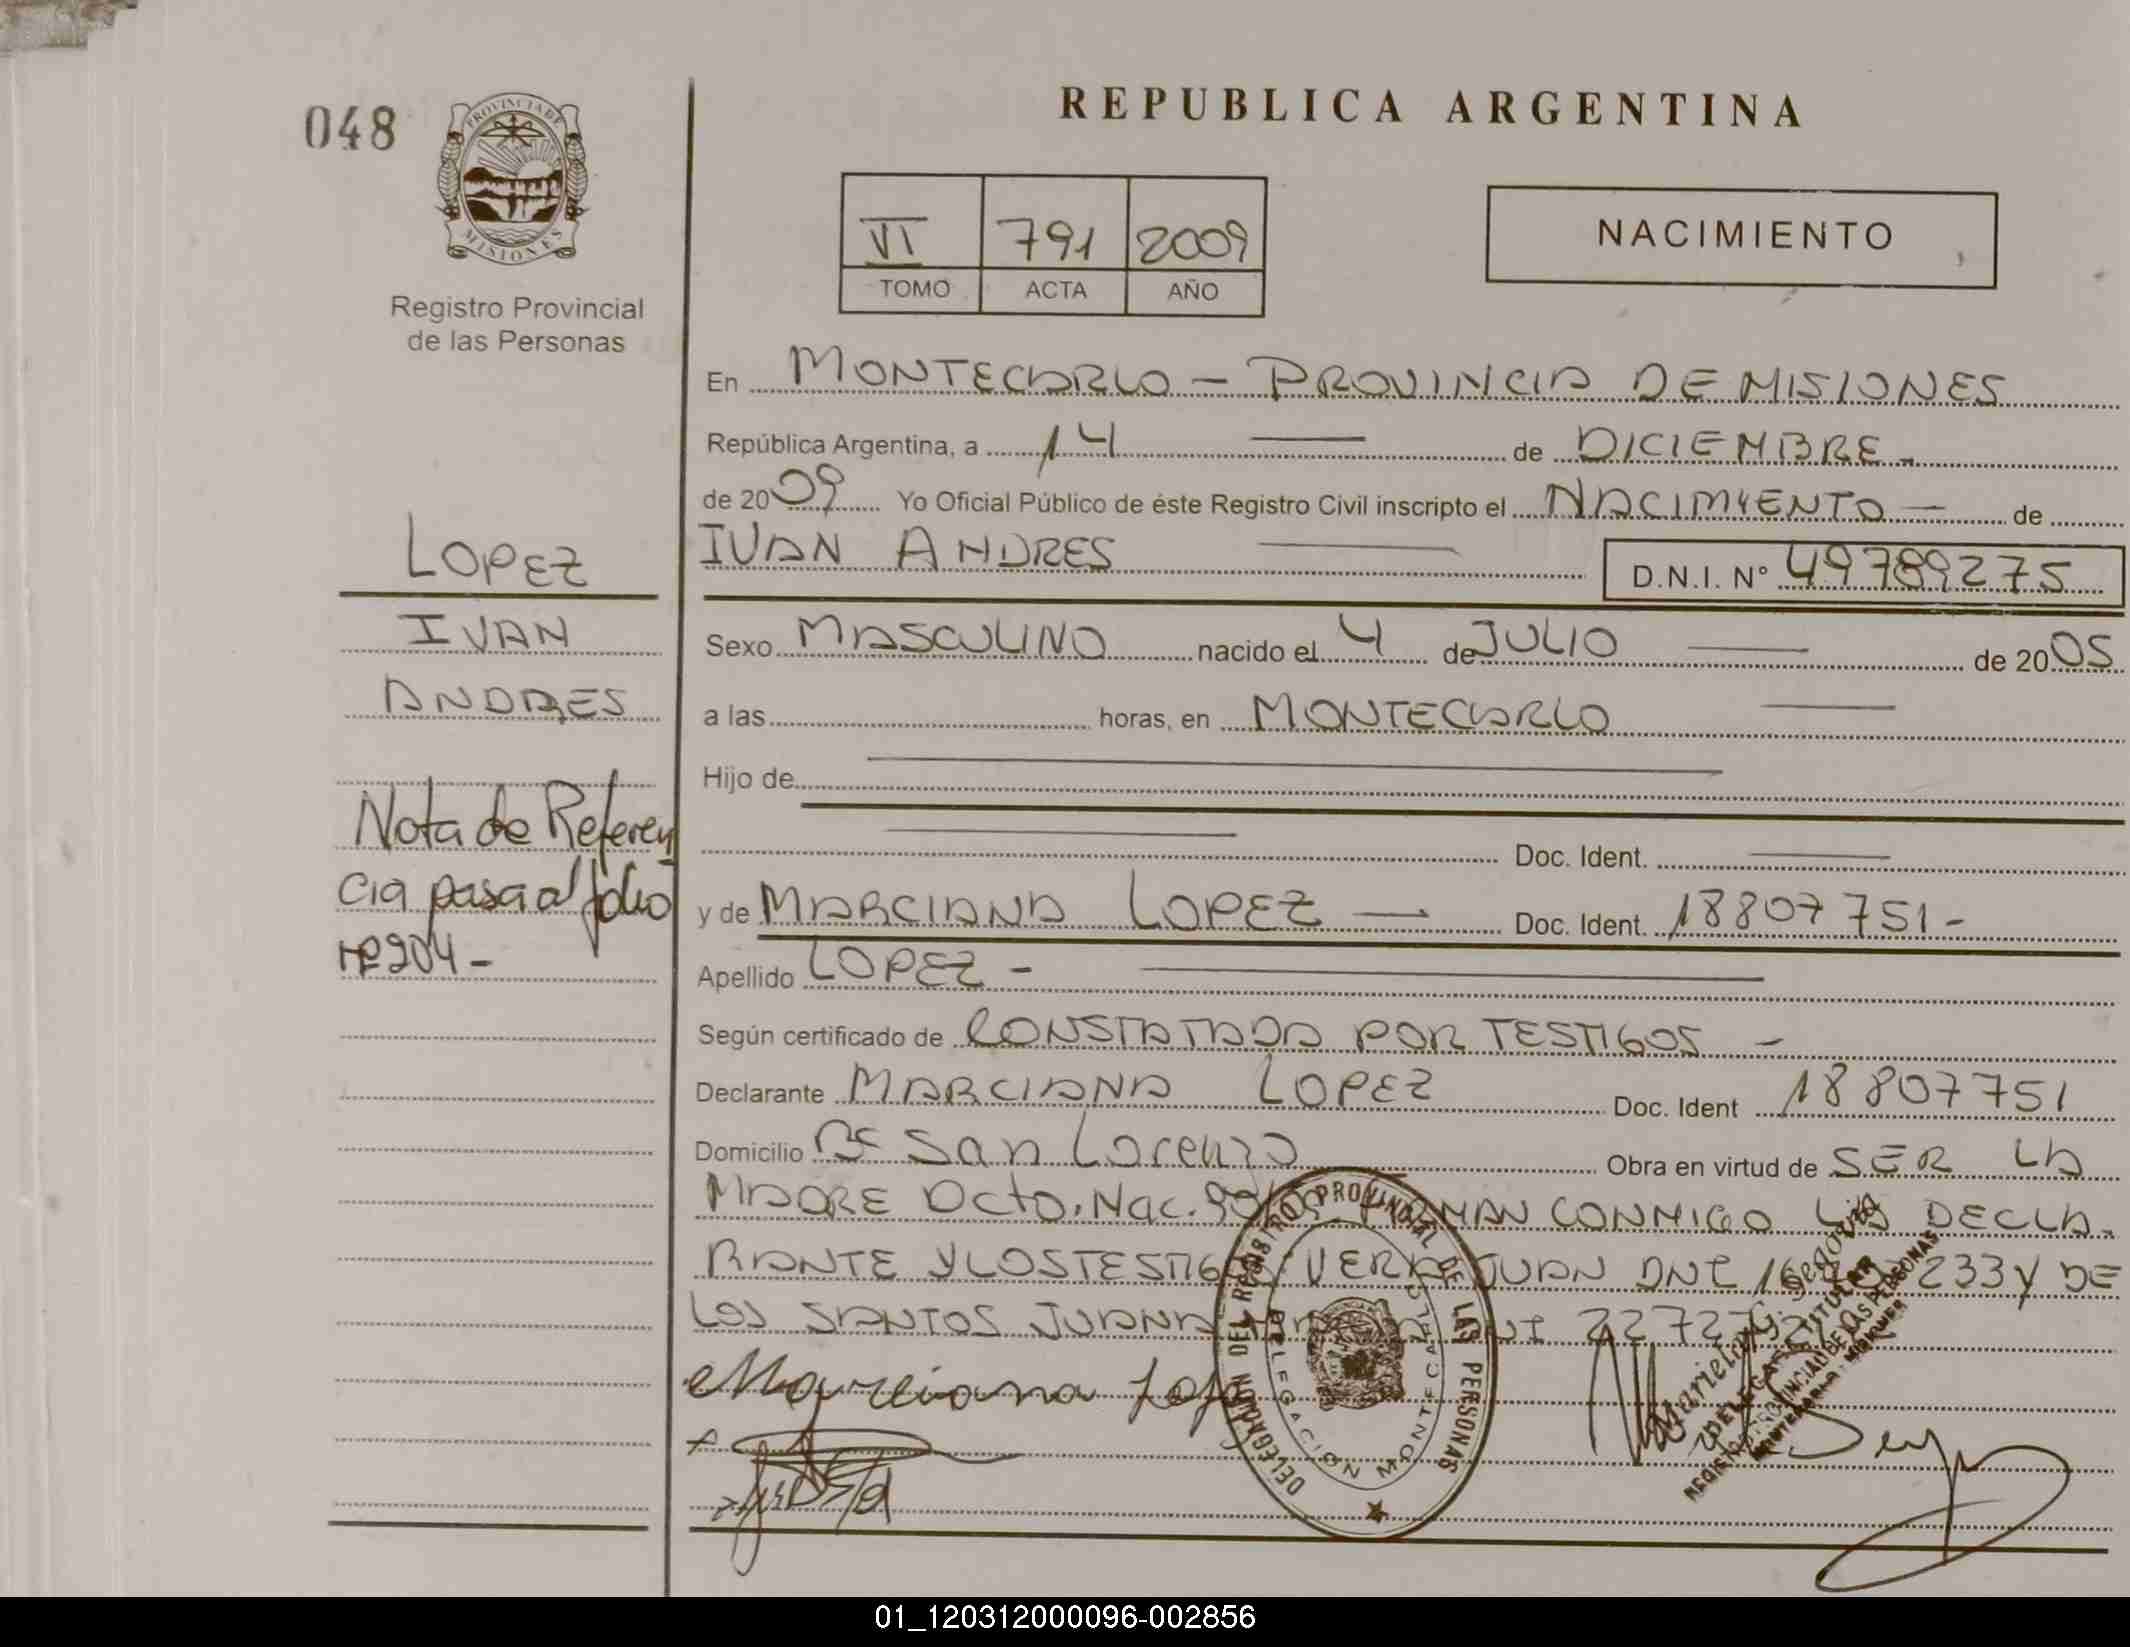 048
PROVINCIA DE
MISIONES
Registro Provincial
de las Personas
REPUBLICA ARGENTINA
VI 791 2009
TOMO ACTA AÑO
NACIMIENTO
En MONTECARLO - PROVINCIA DE MISIONES
República Argentina, a 14 de DICIEMBRE -
de 2009 Yo Oficial Público de éste Registro Civil inscripto el NACIMIENTO - de
IVAN ANDRES D.N.I. N° 49789275
LOPEZ
IVAN
ANDRES
Sexo MASCULINO nacido el 4 de JULIO de 2005
a las horas, en MONTECARLO
Hijo de
Doc. Ident.
y de MARCIANA LOPEZ - Doc. Ident. 18807751-
Apellido LOPEZ -
Nota de Referen
cia pasa al folio
Nº 204 -
Según certificado de CONSTATADA POR TESTIGOS -
Declarante MARCIANA LOPEZ Doc. Ident 18807751
Domicilio Bº San Lorenzo Obra en virtud de SER LA
MADRE Dcto. Nac. CONMIGO LA DECLA-
RANTE Y LOS TESTIGOS VERA JUAN DNI 233 Y DE
LOS SANTOS JUANA
Marciana
DELEGACION DEL REGISTRO PROVINCIAL DE LAS PERSONAS
DELEGACION MONTECARLO
DELEGADA TITULAR
REGISTRO PROVINCIAL DE LAS PERSONAS
01_120312000096-002856